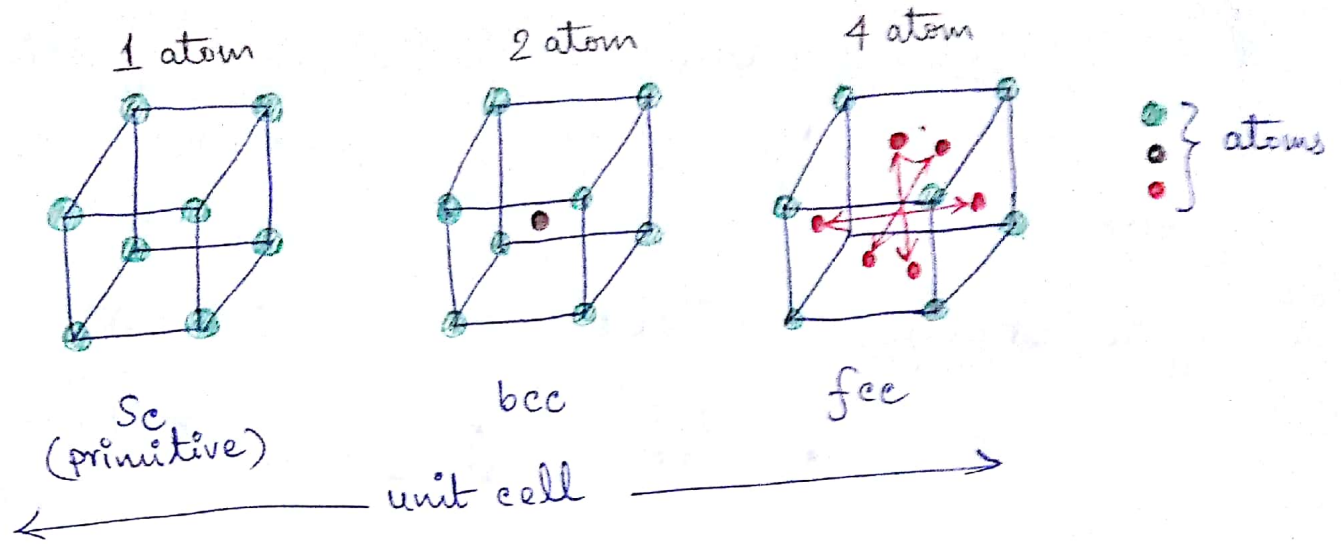 1 atom
2 atom
4 atom
atoms
Sc
(primitive)
bcc
fcc
unit cell